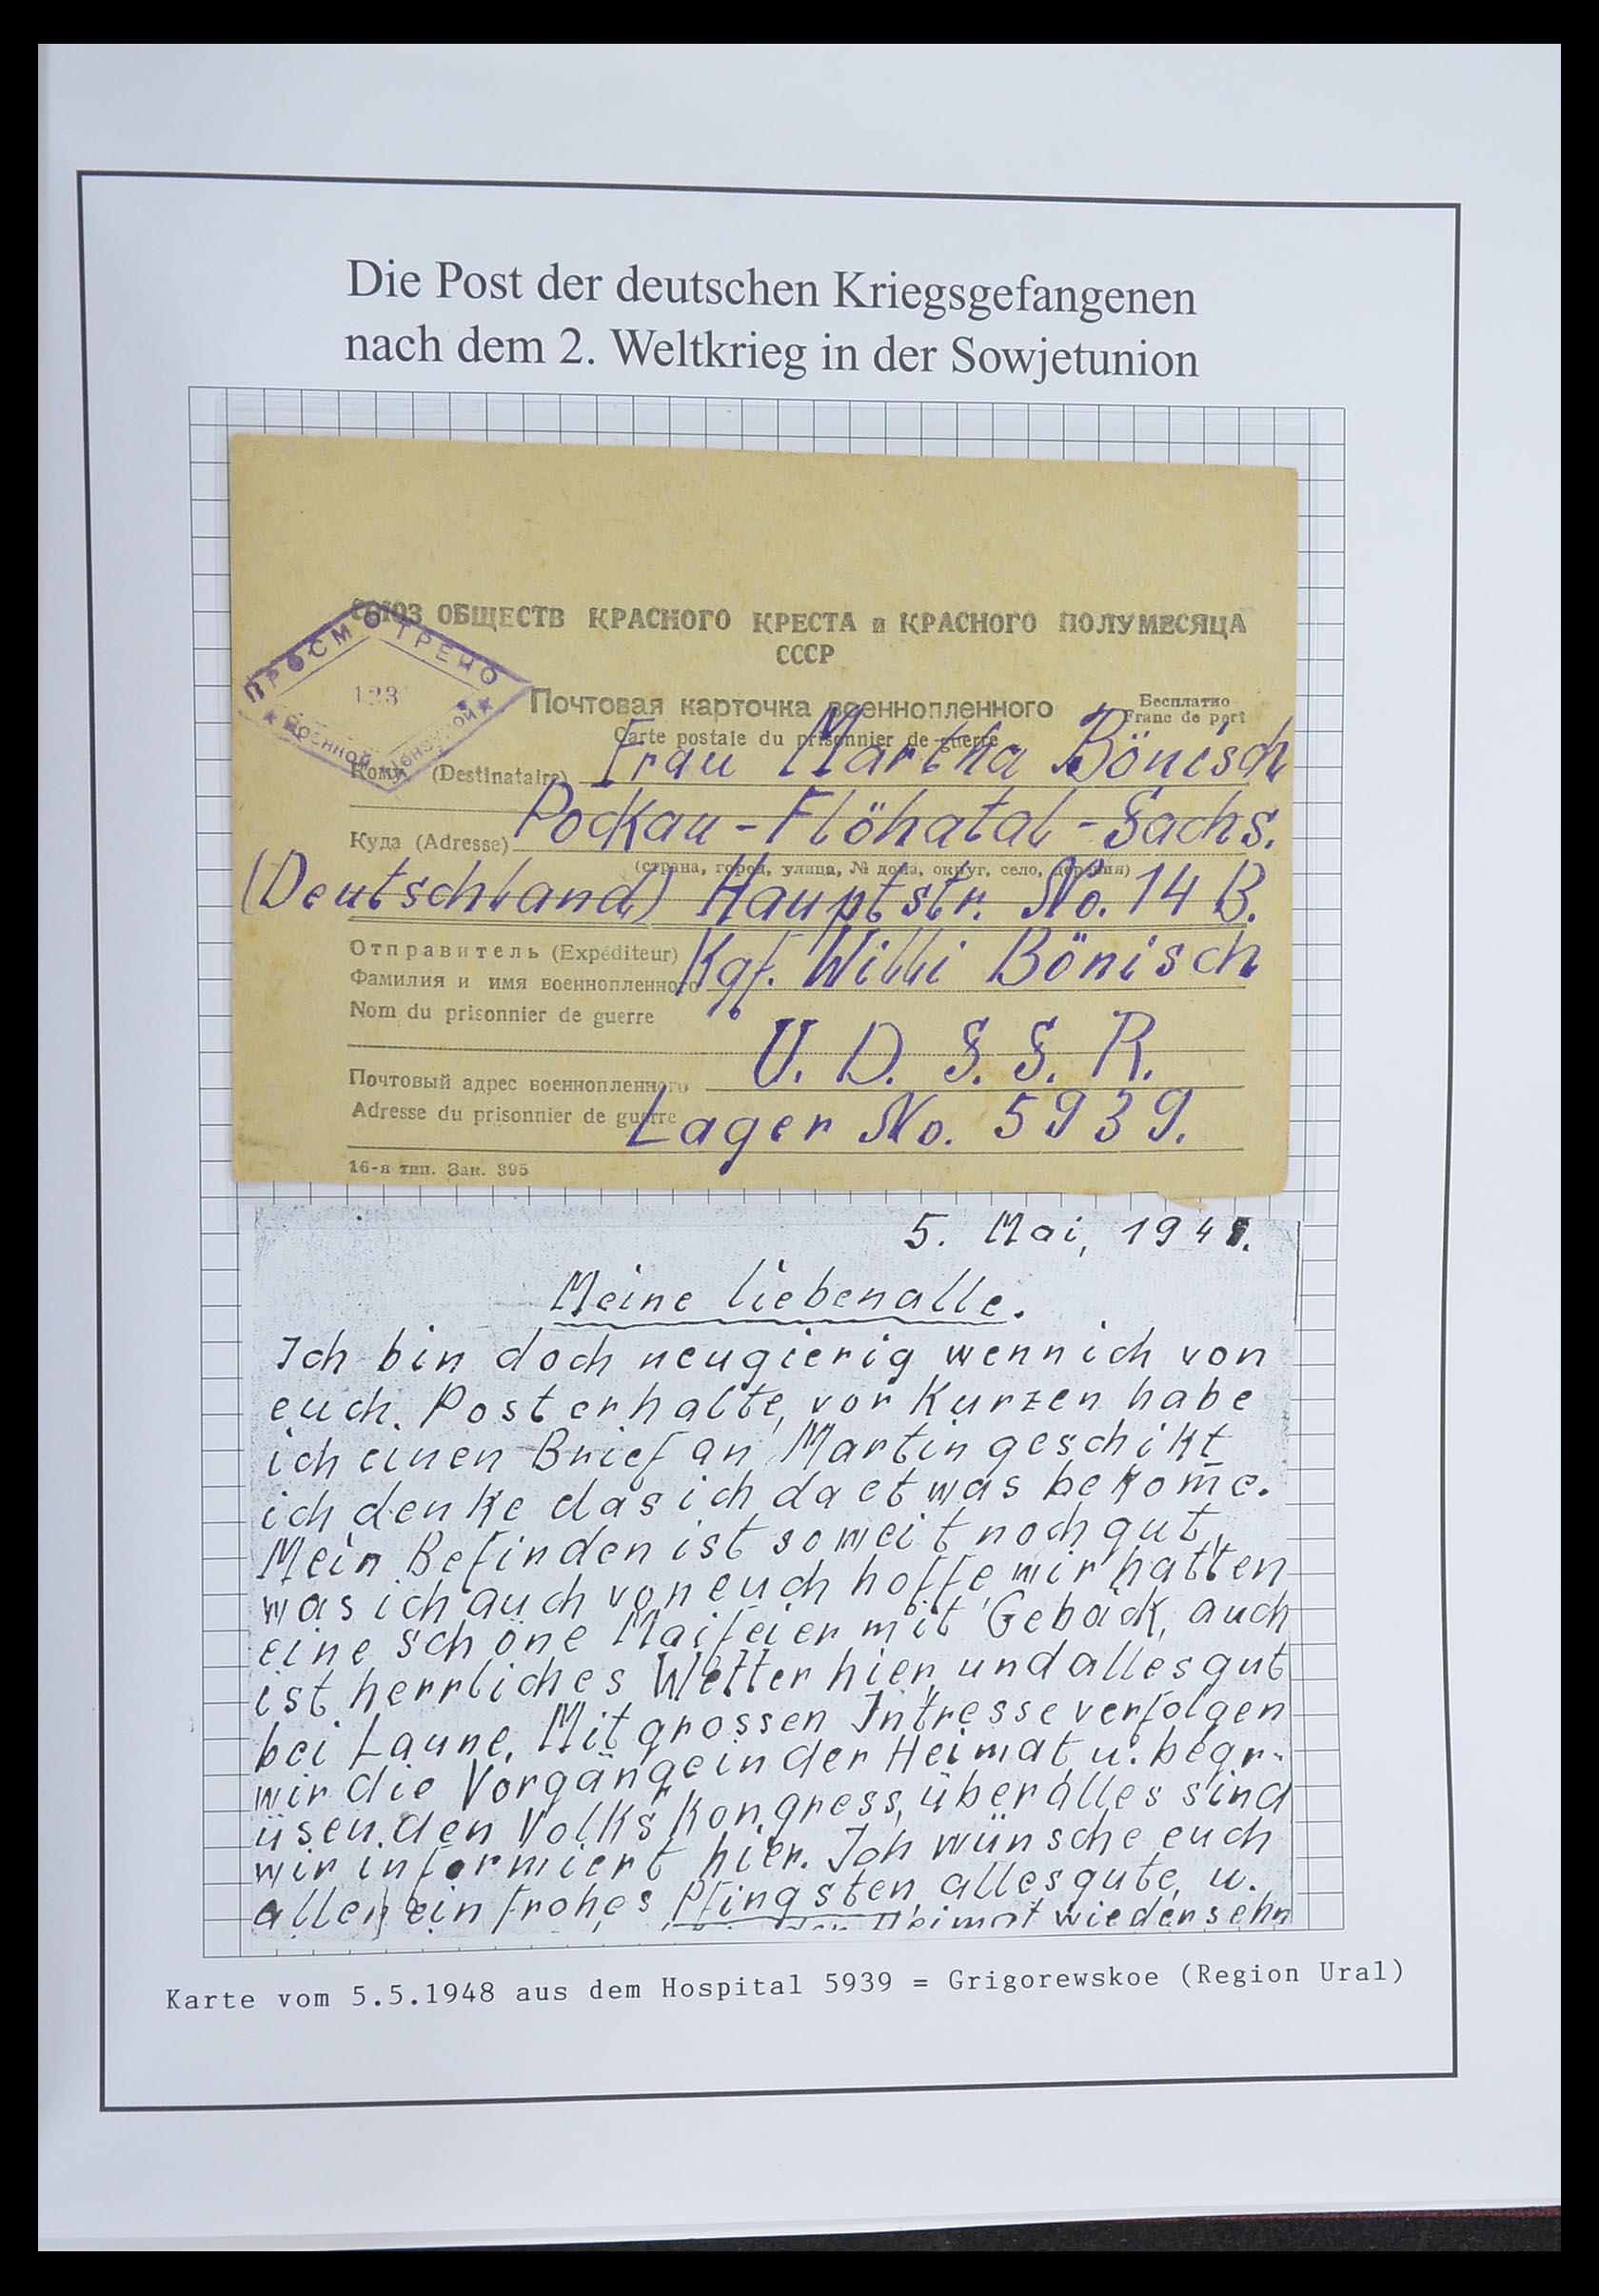 Die Post der deutschen Kriegsgefangenen
nach dem 2. Weltkrieg in der Sowjetunion
СОЮЗ ОБЩЕСТВ КРАСНОГО КРЕСТА и КРАСНОГО ПОЛУМЕСЯЦА
СССР
ПРОСМОТРЕНО
123
★ Военной цензурой ★
Почтовая карточка военнопленного
Бесплатно
Franc de port
Carte postale du prisonnier de guerre
Кому (Destinataire) Frau Martha Bönisch
Куда (Adresse) Pockau-Flöhatal-Sachs.
(страна, город, улица, № дома, округ, село, деревня)
(Deutschland) Hauptstr. No. 14 B.
Отправитель (Expéditeur)
Фамилия и имя военнопленного Kgf. Willi Bönisch
Nom du prisonnier de guerre
U. D. S. S. R.
Почтовый адрес военнопленного
Adresse du prisonnier de guerre Lager No. 5939.
16-я тип. Зак. 395
5. Mai, 1948.
Meine liebenalle.
Ich bin doch neugierig wenn ich von
euch. Post erhalte, vor Kurzen habe
ich einen Brief an Martin geschikt
ich denke das ich da etwas bekom̅e.
Mein Befinden ist soweit noch gut,
was ich auch von euch hoffe, wir hatten
eine schöne Maifeier mit Gebäck, auch
ist herrliches Wetter hier, und alles gut
bei Laune. Mit grossen Intresse verfolgen
wir die Vorgänge in der Heimat u. begr-
üsen. den Volks Kongress, über alles sind
wir informiert hier. Ich wünsche euch
allen ein frohes Pfingsten, alles gute, u.
Heimat wiedersehn
Karte vom 5.5.1948 aus dem Hospital 5939 = Grigorewskoe (Region Ural)